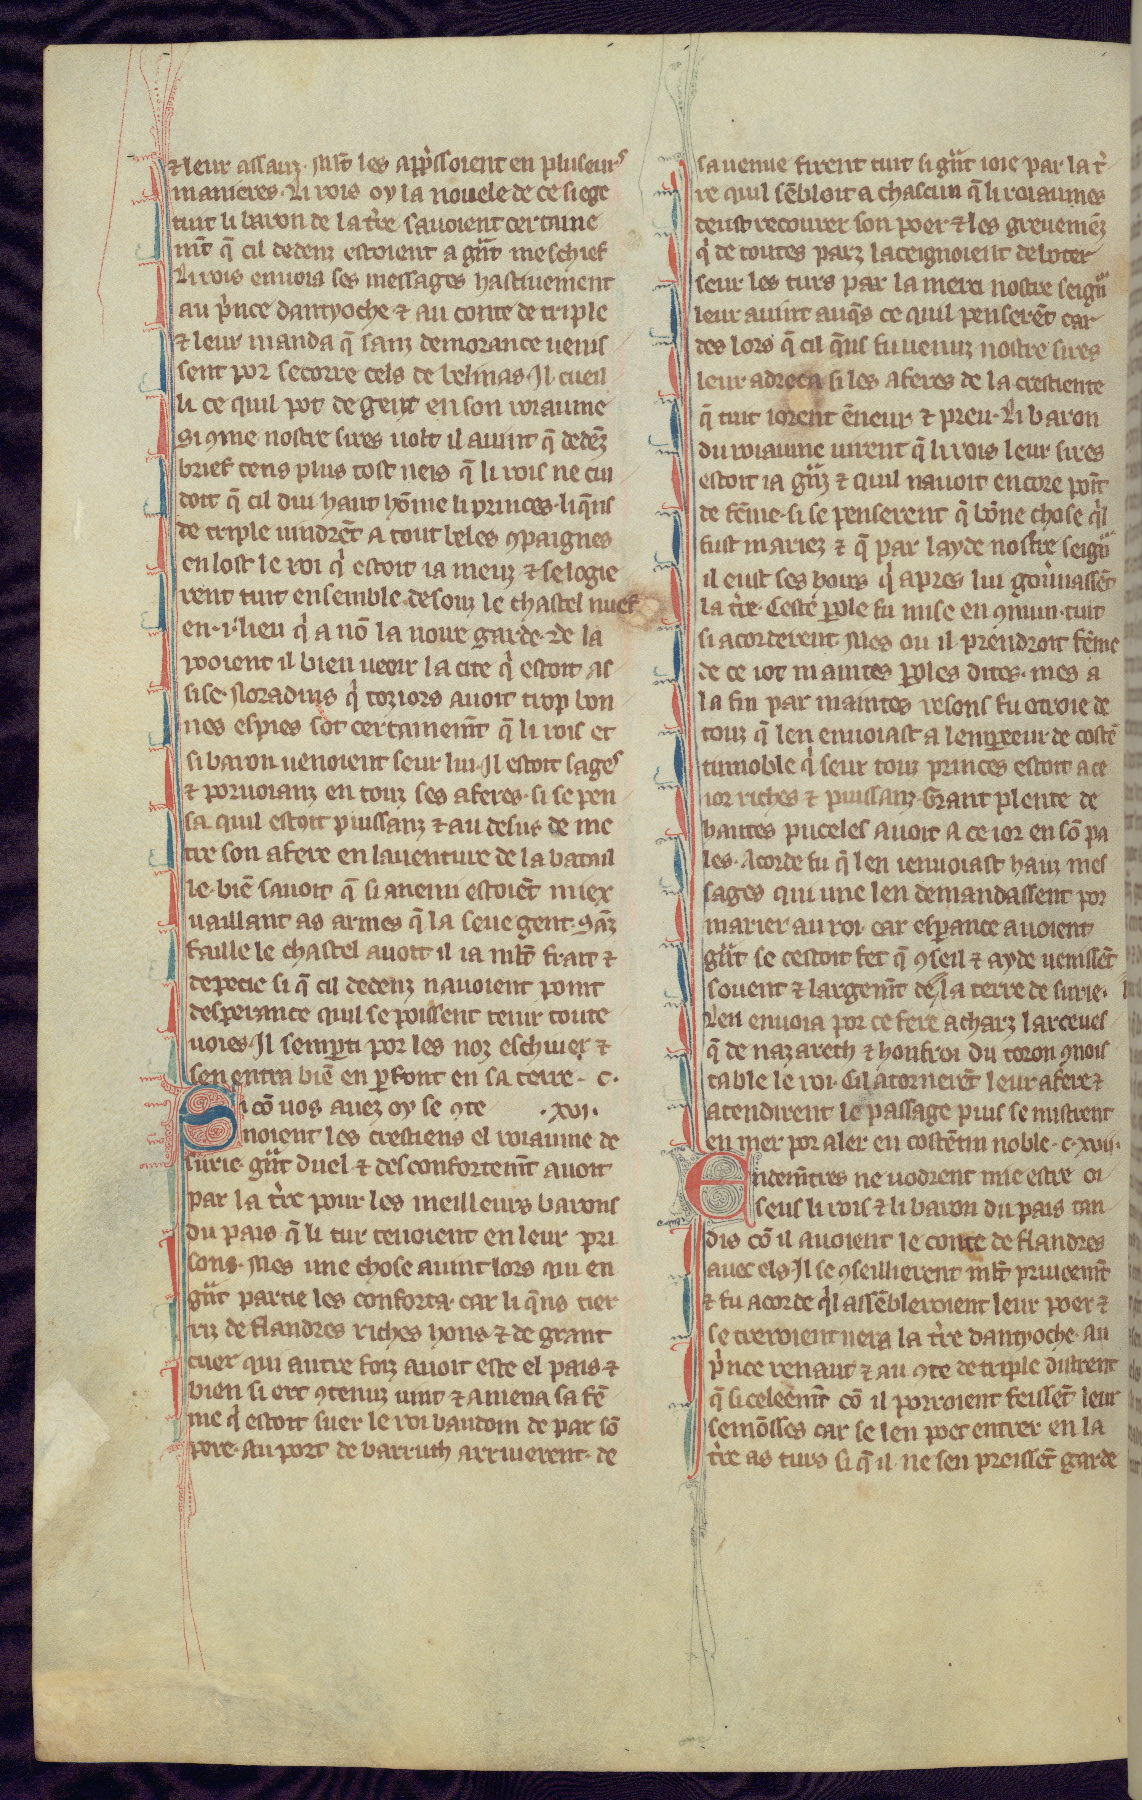 ⁊ leur assauz. Mlt̄ les ap̄ssoient en pluseurs
manieres. Li rois oy la nouele de ce siege
tuit li baron de la t̾re sauoient certaine
mt̄ q̄ cil dedenz estoient a gͣnt meschief
Li rois enuoia ses messages hastiuement
au p̾nce dantyoche ⁊ au conte de triple
⁊ leur manda q̄ sanz demorance uenis
sent por secorre cels de belinas. Il cueil
li ce quil pot de gent en son roiaume
Si ꝯme nostre sires uolt il auint q̄ dedēz
brief tens plus tost neis q̄ li rois ne cui
doit q̄ cil dui haut hōme li princes. li q̄ns
de triple uindrēt a tout beles ꝯpaignes
en lost le roi q̾ estoit ia meuz ⁊ se logie
rent tuit ensemble desouz le chastel nuef
en .i. lieu q̾ a nō la noire garde. de la
pooient il bien ueoir la cite q̾ estoit as
sise. Noradins q̾ toziors auoit trop bon
nes espies sot certainemt̄ q̄ li rois et
si baron uenoient seur lui. Il estoit sages
⁊ poruoianz en touz ses aferes. si se pen
sa quil estoit puissanz ⁊ au desus de me
tre son afere en lauenture de la batail
le. biē sauoit q̄ si anemi estoiēt miex
uaillant as armes q̄ la seue gent. Sāz
faille le chastel auoit il ia mlt̄ frait ⁊
depecie si q̄ cil dedenz nauoient point
desperance quil se poissent tenir toute
uoies. Il senꝑti por les noz eschiuer ⁊
sen entra biē en ꝑfont en sa terre. C.
Si cō uos auez oy se ꝯte .xvi.
noient les crestiens el roiaume de
surie. gͣnt duel ⁊ desconfortemt̄ auoit
par la t̾re pour les meilleurs barons
du pais q̄ li tur tenoient en leur pri
sons. Mes une chose auint lors qui en
gͣnt partie les conforta. car li q̄ns tier
riz de flandres riches hons ⁊ de grant
cuer qui autre foiz auoit este el pais ⁊
bien si ert ꝯtenuz uint ⁊ amena sa fē
me q̾ estoit suer le roi baudoin de par sō
pere. Au port de barruth arriuerent. de
sa uenue firent tuit si gͣnt ioie par la t̾
re quil sēbloit a chascun q̄ li roiaumes
deust recourer son poer ⁊ les greuemēz
q̾ de toutes parz laceignoient deboter
seur les turs par la merci nostre seignͬ
leur auint auq̄s ce quil penserēt car
des lors q̄ cil q̄ns fu uenuz nostre sires
leur adreca si les aferes de la crestiente
q̄ tuit iorent ēneur ⁊ preu. Li baron
du roiaume uirent q̄ li rois leur sires
estoit ia gͣnz ⁊ quil nauoit encore poīt
de fēme. si se penserent q̄ bōne chose q̾l
fust mariez ⁊ q̄ par layde nostre seignͬ
il eust ses hoirs q̾ apres lui gou̾nassēt
la t̾re. Ceste ꝑole fu mise en ꝯmun. tuit
si acorderent. Mes ou il prendroit fēme
de ce iot maintes ꝑoles dites. mes a
la fin par maintes resons fu otroie de
touz q̄ len enuoiast a lenpereeur de costē
tinnoble q̾ seur touz princes estoit a ce
ior riches ⁊ puissanz. Grant plente de
hautes puceles auoit a ce ior en sō pa
les. Acorde fu q̄ len ienuoiast hauz mes
sages qui une len demandassent por
marier au roi. car esperance auoient
gͣnt se cestoit fet q̄ ꝯseil ⁊ ayde uenissēt
souent ⁊ largemt̄ de la terre de surie.
Len enuoia por ce fere acharz larceues
q̄ de nazareth ⁊ honfroi du toron ꝯnois
table le roi. Cil atornerēt leur afere ⁊
atendirent le passage puis se mistrent
en mer por aler en costētin noble. C. xvii.
Endemt̄res ne uodrent mie estre oi
seus li rois ⁊ li baron du pais tan
dis cō il auoient le conte de flandres
auec els. Il se ꝯseillierent mlt̄ priueemt̄
⁊ fu acorde q̾l assēbleroient leur poer ⁊
se treroient uers la t̾re dantyoche. Au
p̾nce renaut ⁊ au ꝯte de triple distrent
q̄ si celeemt̄ cō il porroient feissēt leur
semōsses car se len poet entrer en la
t̾re as turs si q̄ il ne sen preissēt garde